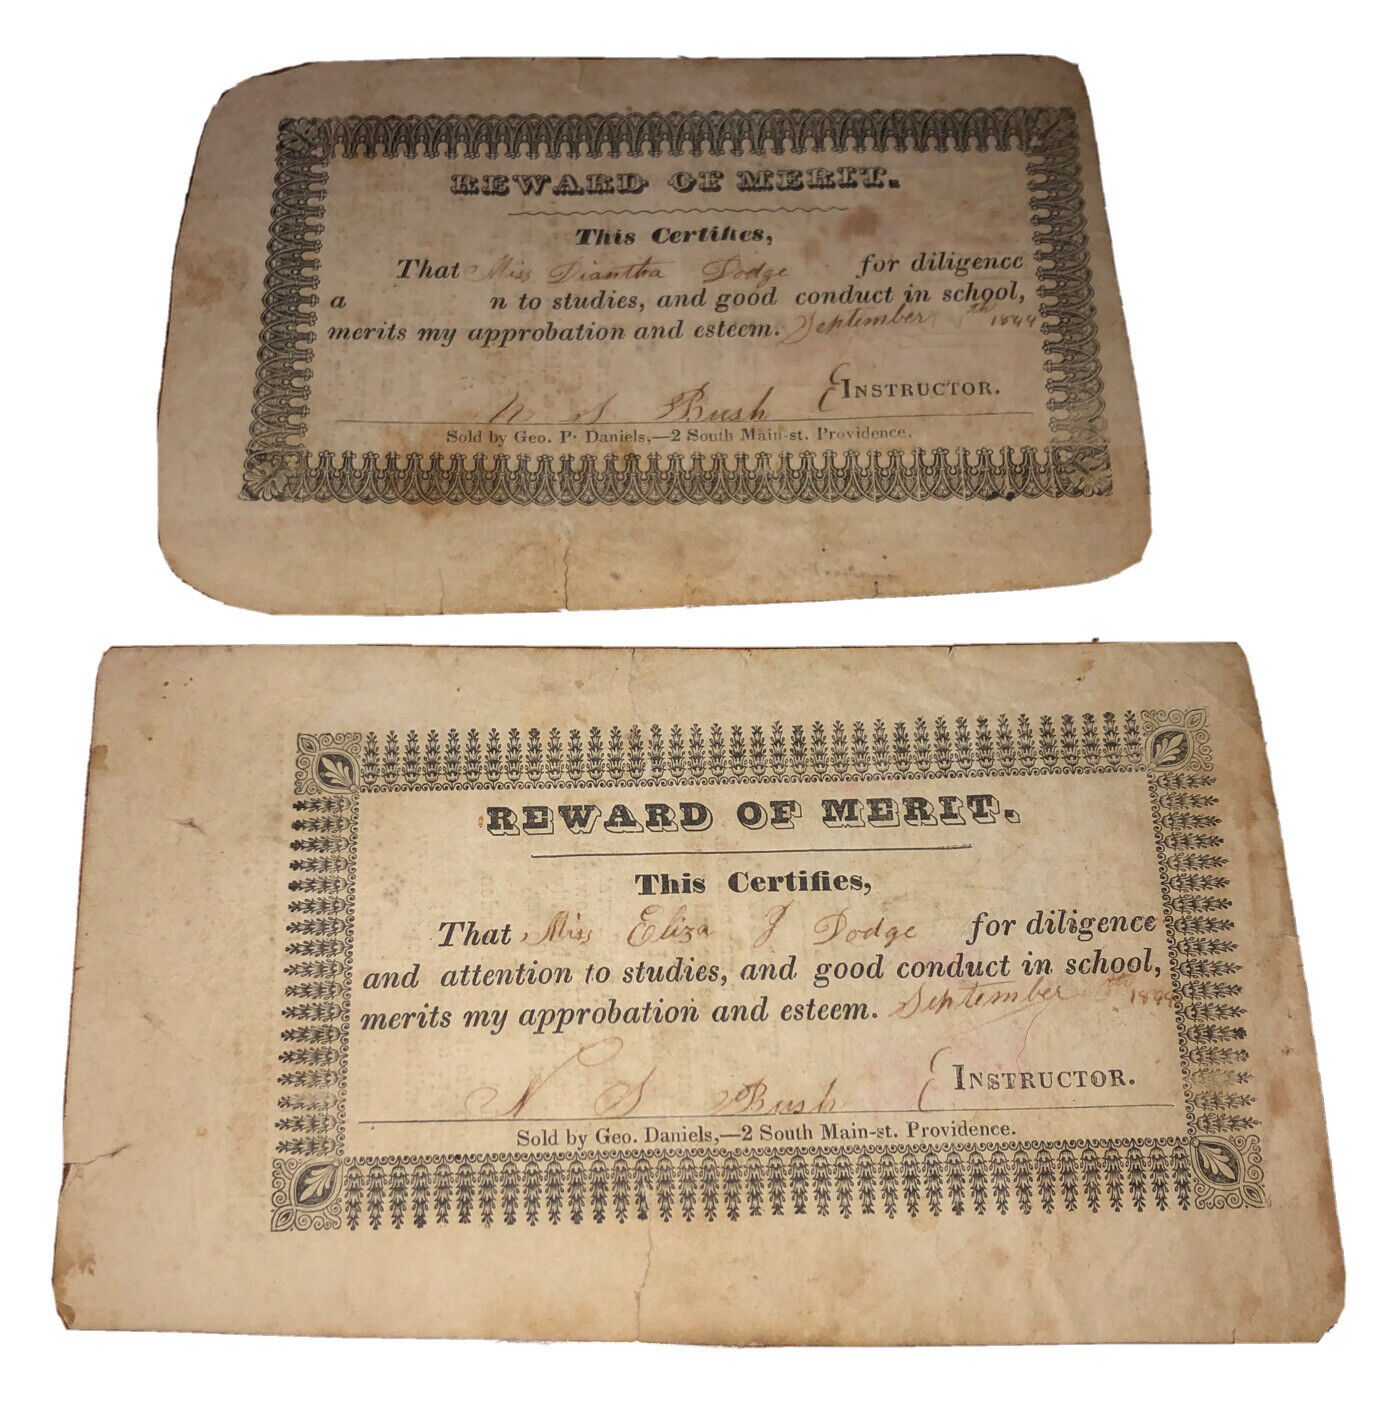 REWARD OF MERIT.
This Certifies,
That Miss Diantha Dodge for diligence
a n to studies, and good conduct in school,
merits my approbation and esteem. September th 1844
N S Bush INSTRUCTOR.
Sold by Geo. P. Daniels,—2 South Main-st. Providence.
REWARD OF MERIT.
This Certifies,
That Miss Eliza J Dodge for diligence
and attention to studies, and good conduct in school,
merits my approbation and esteem. September th 1844
N S Bush INSTRUCTOR.
Sold by Geo. Daniels,—2 South Main-st. Providence.